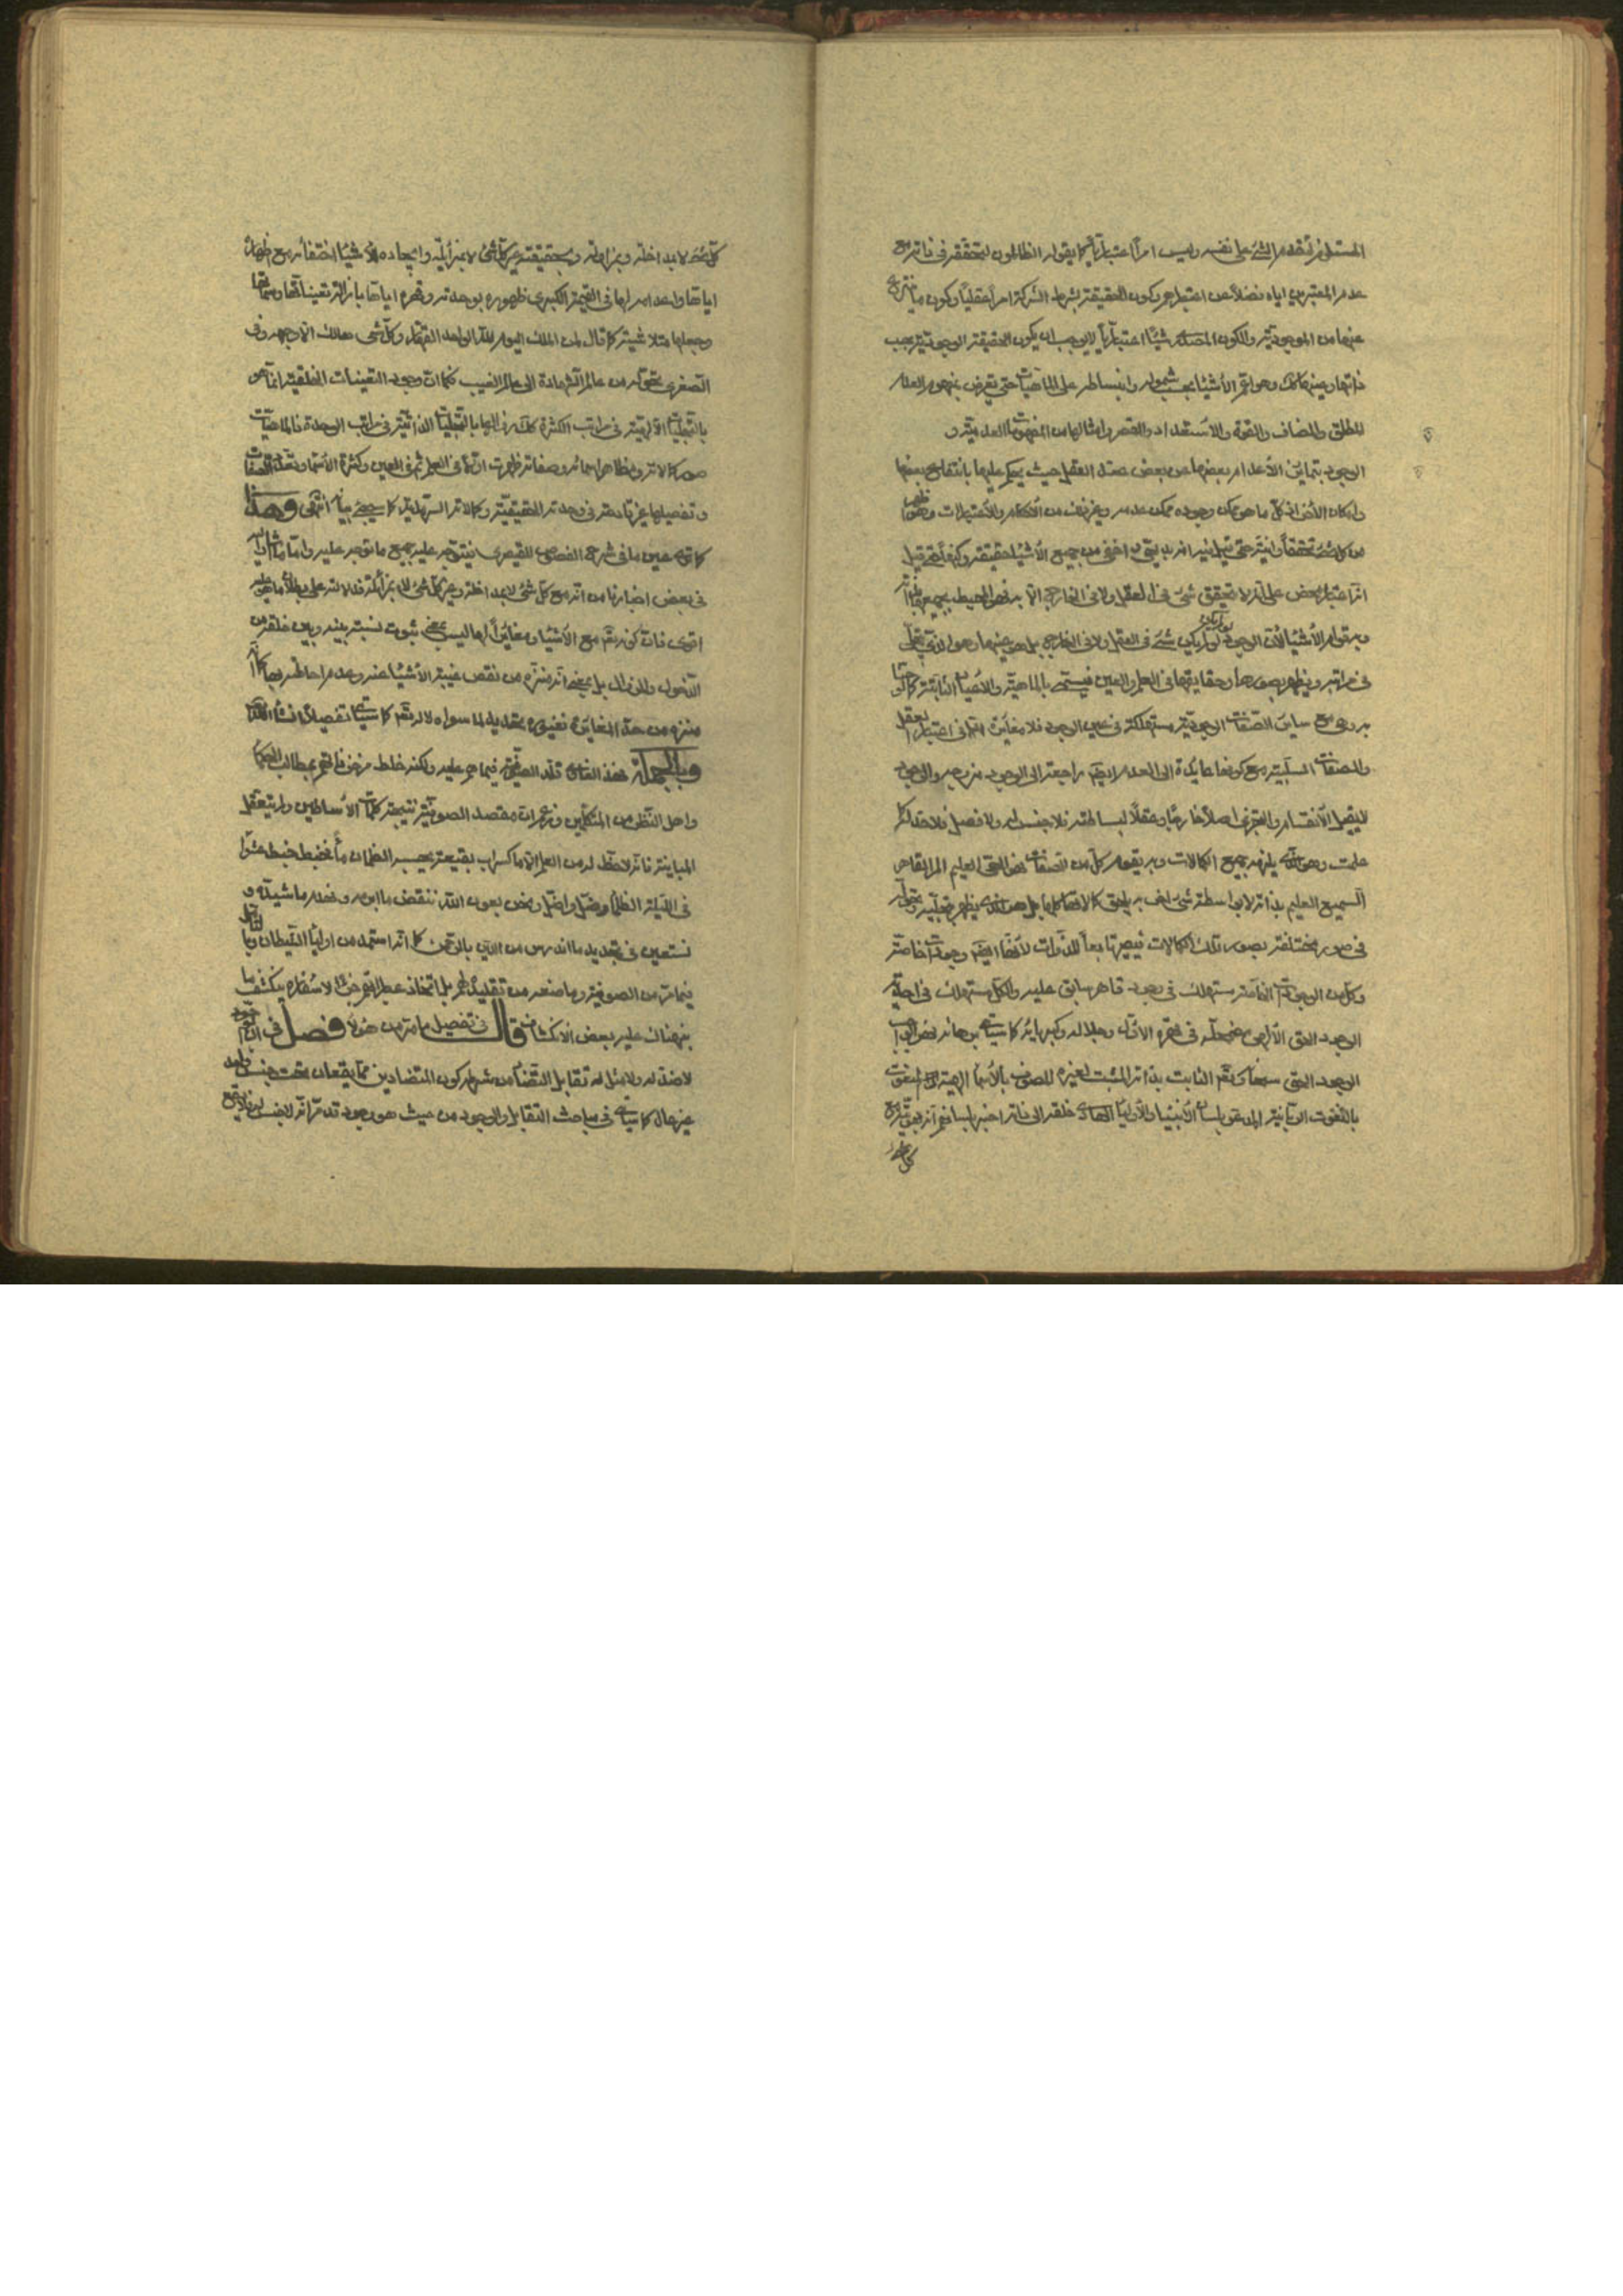 المستلزم لتقدم الشئ على نفسه وليس امراً اعتبارياً كما يقول الظالمون لتحققه في ذاته مع
عدم المعتبرين اياه فضلاً عن اعتباراتهم وكون الحقيقة بشرط الشركة امراً عقلياً وكون ما ينتزع
عنها من الموجودية والكون المصدري شيئاً اعتبارياً لا يوجب ان يكون الحقيقة الوجودية بحسب
ذاتها وعينها كذلك وهو اعم الأشياء بحسب شموله وانبساطه على الماهيات حتى يعرض مفهوم العدم
المطلق والمضاف والقوة والاستعداد والفقر وامثالها من المفهومات العدمية و
الوجود يتمايز الأعدام بعضها عن بعض عند العقل حيث يحكم عليها بامتناع بعضها
وامكان الآخر اذ كل ما هو ممكن وجوده ممكن عدمه وغير ذلك من الأحكام والأعتبارات وهو اظهر
من كل شئ تحققاً وانية حتى قيل فيه انه بديهي واخفى من جميع الأشياء حقيقة وكنهاً حتى قيل
انه اعتبار محض على انه لا يتحقق شئ في العقل ولا في الخارج الا به فهو المحيط بجميعها بذاته
وبه قوام الأشياء لأن الوجود لو لم يكن لم يكن شئ في العقل ولا في الخارج بل هو عينها وهو الذي يتجلى
في مراتبه ويظهر بصورها وحقايقها في العلم والعين فيسمى بالماهية والأعيان الثابتة كما لوحنا
به وهي مع ساير الصفات الوجودية مستهلكة في عين الوجود فلا مغايرة الا في اعتبار العقل
والصفات السلبية مع كونها عايدة الى العدم ايضاً راجعة الى الوجود من وجه والوجود
لا يقبل الانقسام والتجزي اصلاً خارجاً وعقلاً لبساطته فلا جنس له ولا فصل فلا حد له كما
علمت وهو الذي يلزمه جميع الكمالات وبه يقوم كل من الصفات فهو الحي العليم المريد القادر
السميع العليم بذاته لا بواسطة شئ اخر به يلحق الاشياء كلها كمالاتها بل هو الذي يظهر بتجليه وتحوله
في صور مختلفة بصور تلك الكمالات فيصير تابعاً للذوات لأنها ايضاً وجودات خاصة
وكل من الوجودات الخاصة مستهلك في وجود قاهر سابق عليه والكل مستهلك في احدية
الوجود الحق الالهي مضمحلة في قهره الأول وجلاله وكبريائه كما سيأتي برهانه فهو الواجب
الوجود الحق سبحانه وتعالى الثابت بذاته المثبت لغيره الموصوف بالأسماء الالهية المنعوت
بالنعوت الربانية المدعو بلسان الأنبياء والأولياء الهادي خلقه الى ذاته اخبر بلسانهم انه بهويته مع
كل شئ
كل شئ لا بمداخلة ومزاولة وبحقيقته غير كل شئ لا بمزايلة وايجاده للأشياء اختفائه مع اظهاره
اياها واعدامه لها في القيمة الكبرى ظهوره بوحدته وقهره اياها بازالة تعيناتها وسماتها
وجعلها متلاشية كما قال لمن الملك اليوم لله الواحد القهار وكل شئ هالك الا وجهه وفي
الصغرى تحوله من عالم الشهادة الى عالم الغيب فكما ان وجود التعينات الخلقية انما هو
بالتجليات الألهية في مراتب الكثرة كذلك زوالها بالتجليات الذاتية في مراتب الوحدة فالماهيات
صور كمالاته ومظاهر اسمائه وصفاته ظهرت اولاً في العلم ثم في العين وكثرة الأسماء وتعدد الصفات
وتفصيلها غير قادحة في وحدته الحقيقية وكمالاته السرمدية كما سيجئ بيانه انتهى وهذا
كما ترى عين ما في شرح الفصوص للقيصري فيتوجه عليه جميع ما توجه عليه واما ما شار اليه
في بعض اخبارنا من انه مع كل شئ لا بمداخلة وغير كل شئ لا بمزايلة فدلالته على بطلان ما هو عليه
اقوى فان كونه تع مع الأشياء ومغايراً لها ليس بمعنى ثبوت نسبة بينه وبين خلقه من
الدخول والزوال بل بمعنى انه منزه من نقص غيبة الأشياء عنه وعدم احاطته بها كما انه
منزه من حد المغايرة فغيوره تحديد لما سواه لا له تع كما سيأتي تفصيلاً انشاء الله
وبالجملة فهذا الفاضل قلد الصوفية فيما هم عليه ولكنه خلط مزخرفاتهم بمطالب الحكماء
واهل النظر من المتكلمين وزعم ان مقصد الصوفية نتيجة كلمات الأساطين ولم يتعقل
المباينة فانه لا حظ له من العلم الا ما كسراب بقيعة يحسبه الظمآن ماء فخبط خبط عشواء
في الليلة الظلماء وضل واضل ونحن بعون الله ننقض ما ابرمه ونهدم ما شيده و
نستعين في تجديد ما اندرس من الدين بالرحمن كما انه استمد من اولياء الشيطان وبالتأمل
فيما مر من الصوفية وما صنعه من تقليدهم بل اتخاذ عباراتهم جزءاً لاسفاره ينكشف ما
نبهناك عليه بعض الانكشاف قال في تفصيل ما مر من قوله فصل في ان الوجود
لا ضد له ولا مثل له تقابل التضاد من شرطه كون المتضادين مما يقعان تحت جنس واحد
غير عال كما سيأتي في مباحث التقابل والوجود من حيث هو وجود قد مر انه لا جنس له فلا يقع